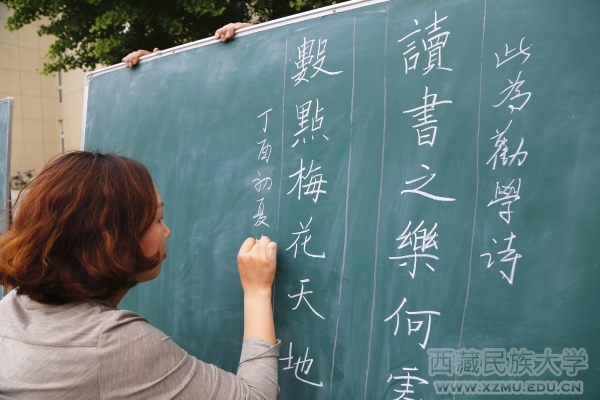 此为勸學诗
讀書之樂何處
數點梅花天地
丁酉初夏
西藏民族大学
WWW.XZMU.EDU.CN